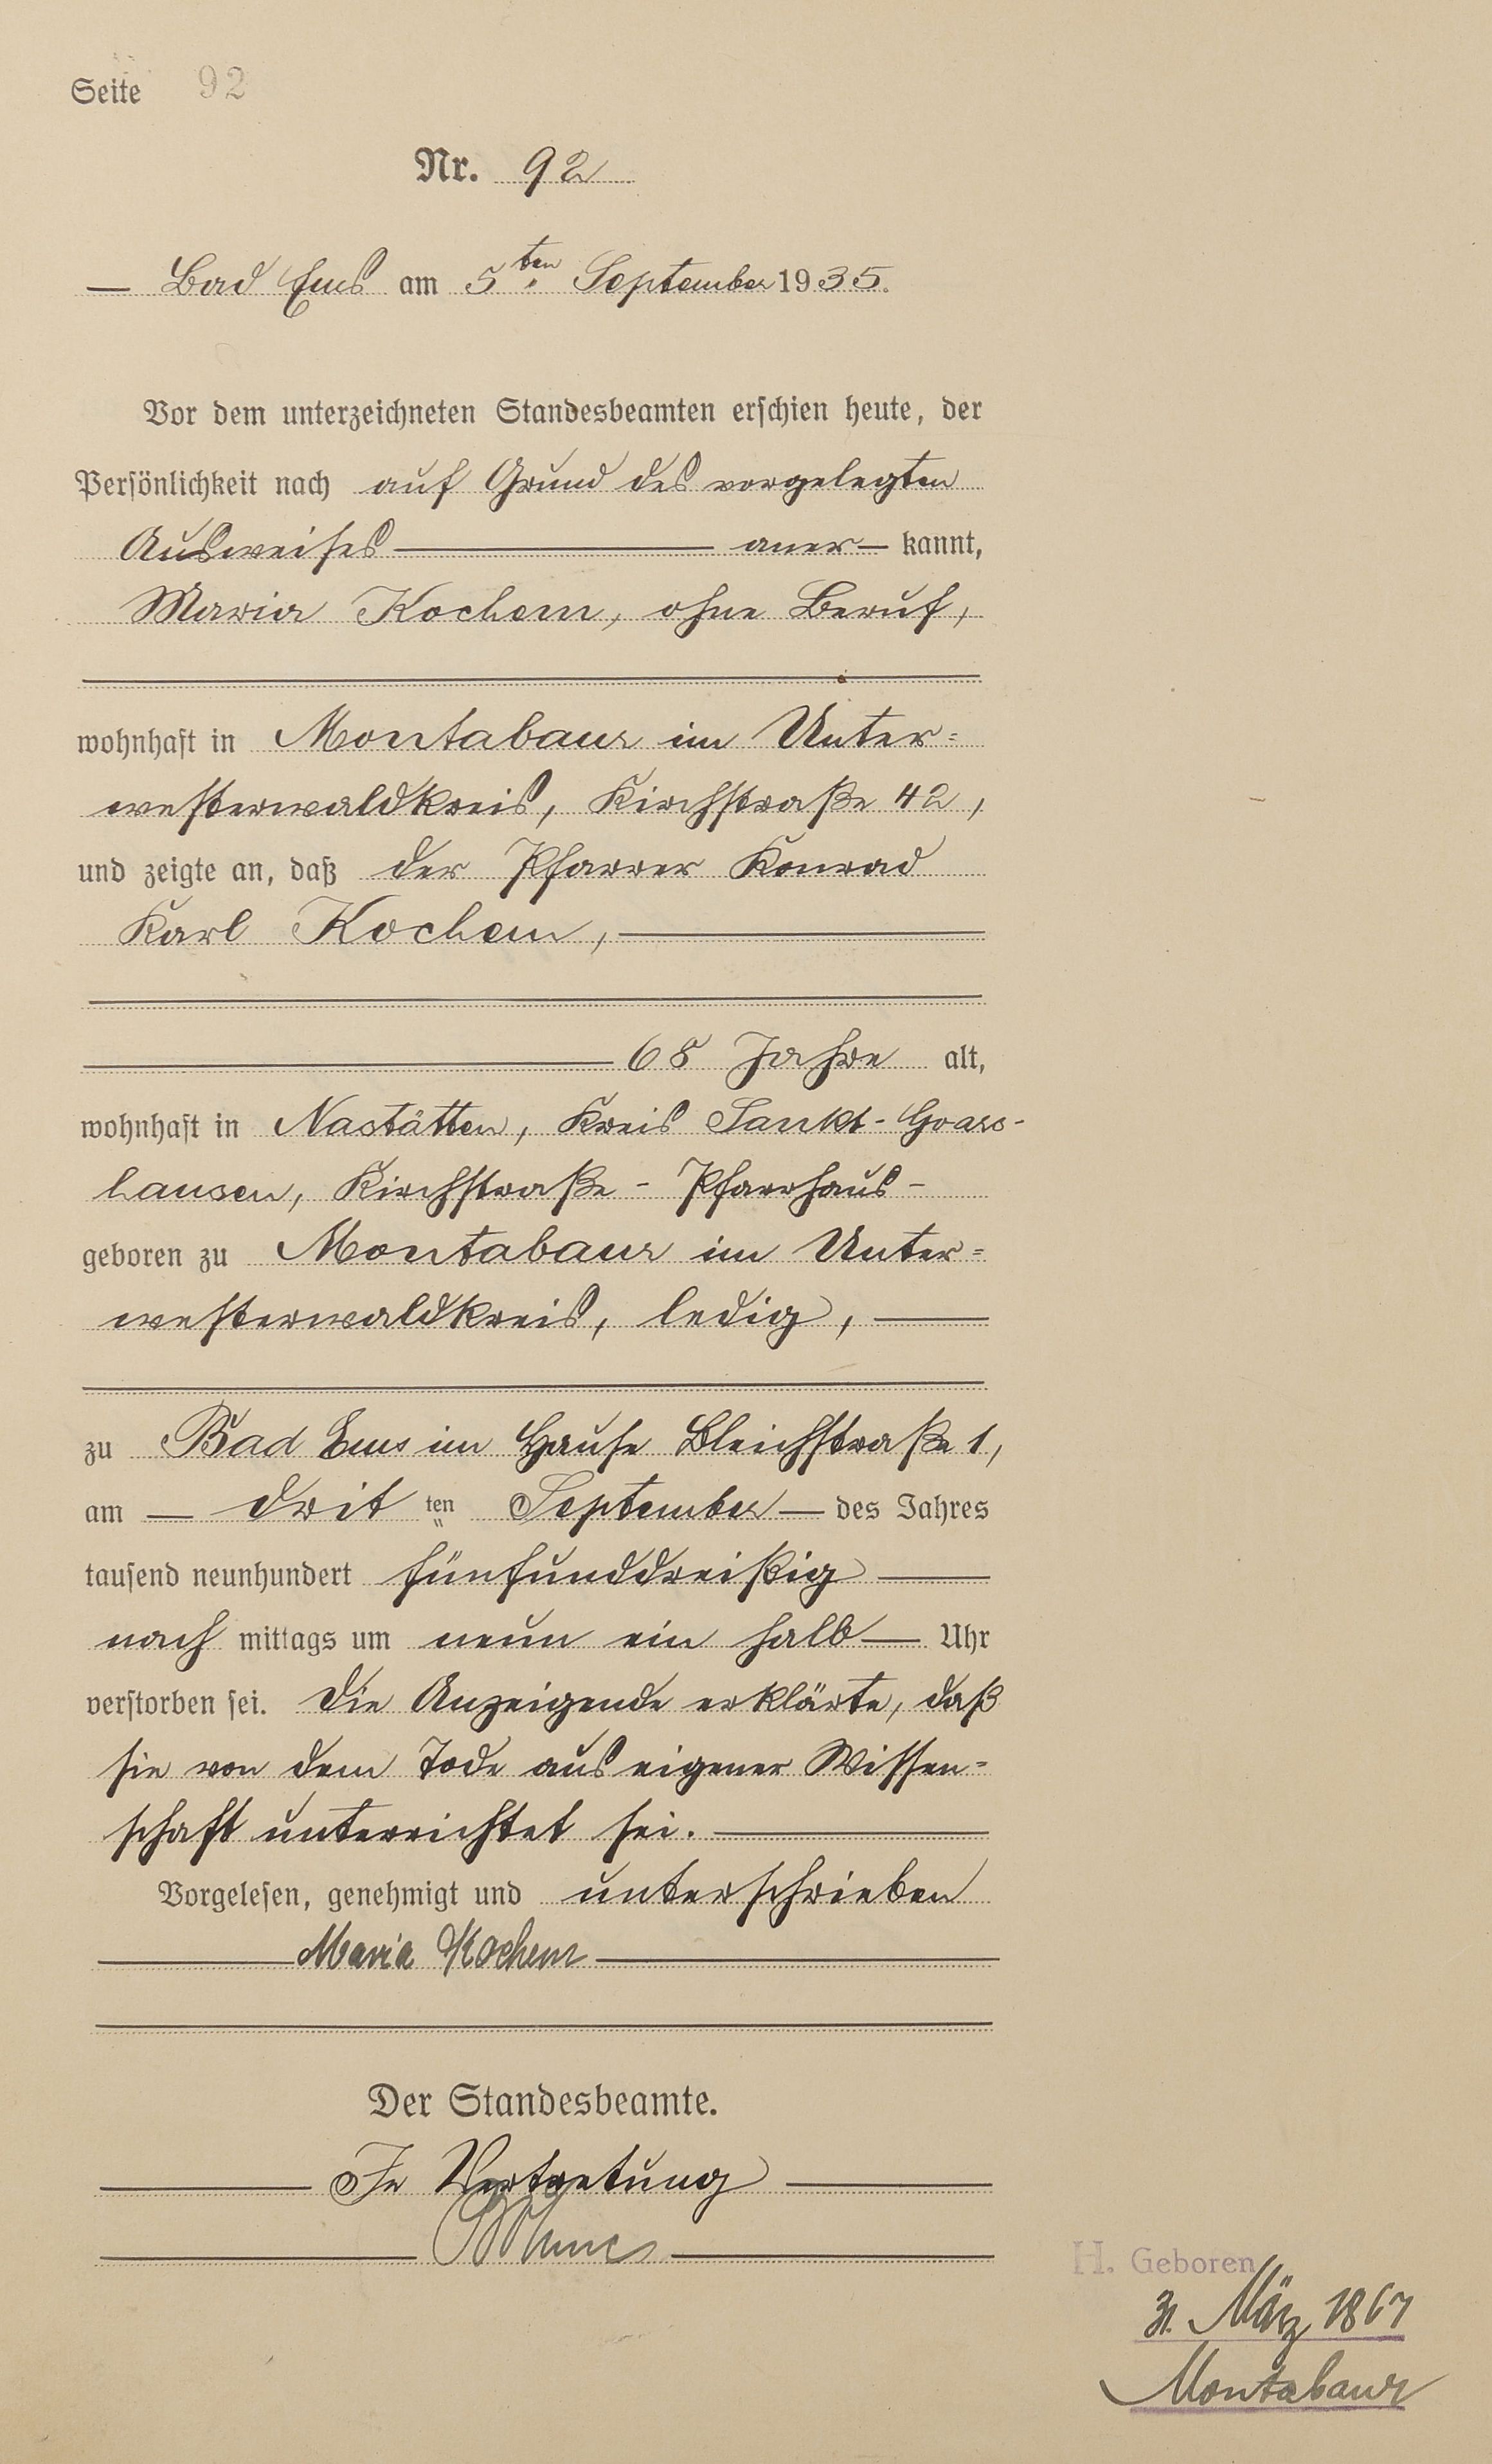 Seite 92
Nr. 92
— Bad Ems am 5ten September 1935.
Vor dem unterzeichneten Standesbeamten erschien heute, der
Persönlichkeit nach auf Grund des vorgelegten
Ausweises — aner— kannt,
Maria Kochem, ohne Beruf,
wohnhaft in Montabaur im Unter=
westerwaldkreis, Kirchstraße 42,
und zeigte an, daß der Pfarrer Konrad
Karl Kochem,—
— 68 Jahre alt,
wohnhaft in Nastätten, Kreis Sankt-Goars-
hausen, Kirchstraße - Pfarrhaus-
geboren zu Montabaur im Unter=
westerwaldkreis, ledig, —
zu Bad Ems im Hause Bleichstraße 1,
am — drit ten September — des Jahres
tausend neunhundert fünfunddreißig —
nach mittags um neun ein halb — Uhr
verstorben sei. Die Anzeigende erklärte, daß
sie von dem Tode aus eigener Wissen=
schaft unterrichtet sei. —
Vorgelesen, genehmigt und unterschrieben
— Maria Kochem —
Der Standesbeamte.
— In Vertretung —
H. Geboren
31. März 1867
Montabaur